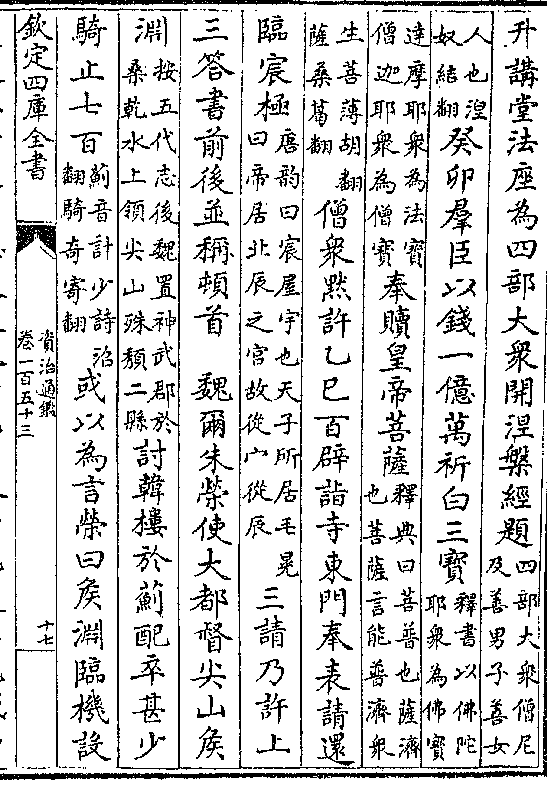 升講堂法座為四部大衆開涅槃經題四部大衆僧尼及善男子善女
人也湼奴結翻癸卯羣臣以錢一億萬祈白三寳釋書以佛陀耶衆為佛寳
達摩耶衆為法寳僧迦耶衆為僧寳奉贖皇帝菩薩釋典曰菩普也薩濟也菩薩言能普濟衆
生菩薄胡翻薩桑葛翻僧衆黙許乙巳百辟詣寺東門奉表請還
臨宸極唐韵曰宸屋宇也天子所居毛晃曰帝居北辰之宫故從宀從辰三請乃許上
三答書前後並稱頓首　魏爾朱榮使大都督尖山侯
淵按五代志後魏置神武郡於桑乾水上領尖山殊頽二縣討韓樓於薊配卒甚少
騎止七百薊音計少詩沼翻騎奇寄翻或以為言榮曰侯淵臨機設
欽定四庫全書
資治通鑑
卷一百五十三
十七